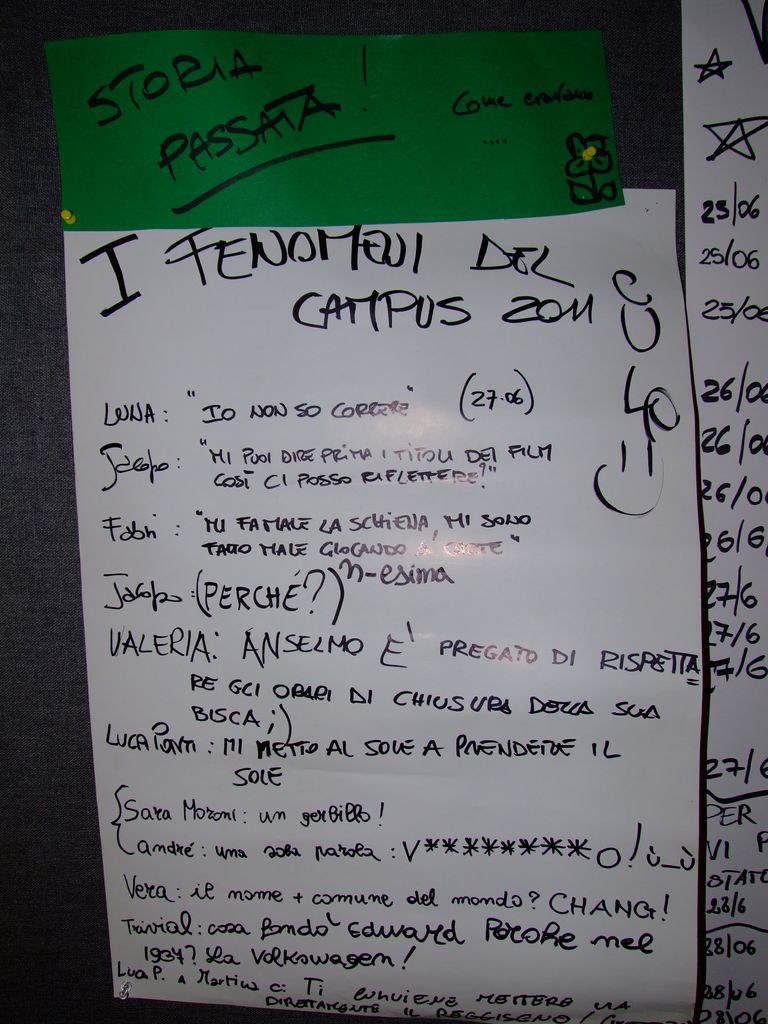 STORIA !
PASSATA
Come eravamo
....
I FENOMENI DEL
CAMPUS 2011
LUNA: "IO NON SO CORRERE" (27.06)
Jacopo: "MI PUOI DIRE PRIMA I TITOLI DEI FILM
COSÌ CI POSSO RIFLETTERE?"
Fabri: "MI FA MALE LA SCHIENA, MI SONO
FATTO MALE GIOCANDO A CARTE"
Jacopo: (PERCHÉ?) n-esima
VALERIA: ANSELMO E' PREGATO DI RISPETTA
RE GLI ORARI DI CHIUSURA DELLA SUA
BISCA ;)
LUCA PONTI: MI METTO AL SOLE A PRENDERE IL
SOLE
Sara Moroni: un gerbillo!
André: una sola parola: V********O! ù_ù
Vera: il nome + comune del mondo? CHANG!
Trivial: cosa fondò Edward Porche nel
1937? La Volkswagen!
Luca P. a Martina C: TI CONVIENE METTERE VIA
DIRETTAMENTE IL REGGISENO!
25/06
25/06
25/06
26/06
26/06
26/06
26/6
27/6
27/6
27/6
27/6
PER
VI
STATO
28/6
28/06
28/06
28/06